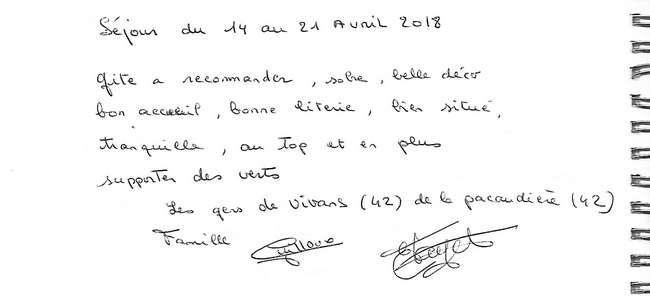 Séjour du 14 au 21 Avril 2018
gite a recommander, sobre, belle déco
bon accueil, bonne literie, bien situé,
tranquille, au top et en plus
supporter des verts
Les gens de Vivans (42) de la pacaudière (42)
Famille